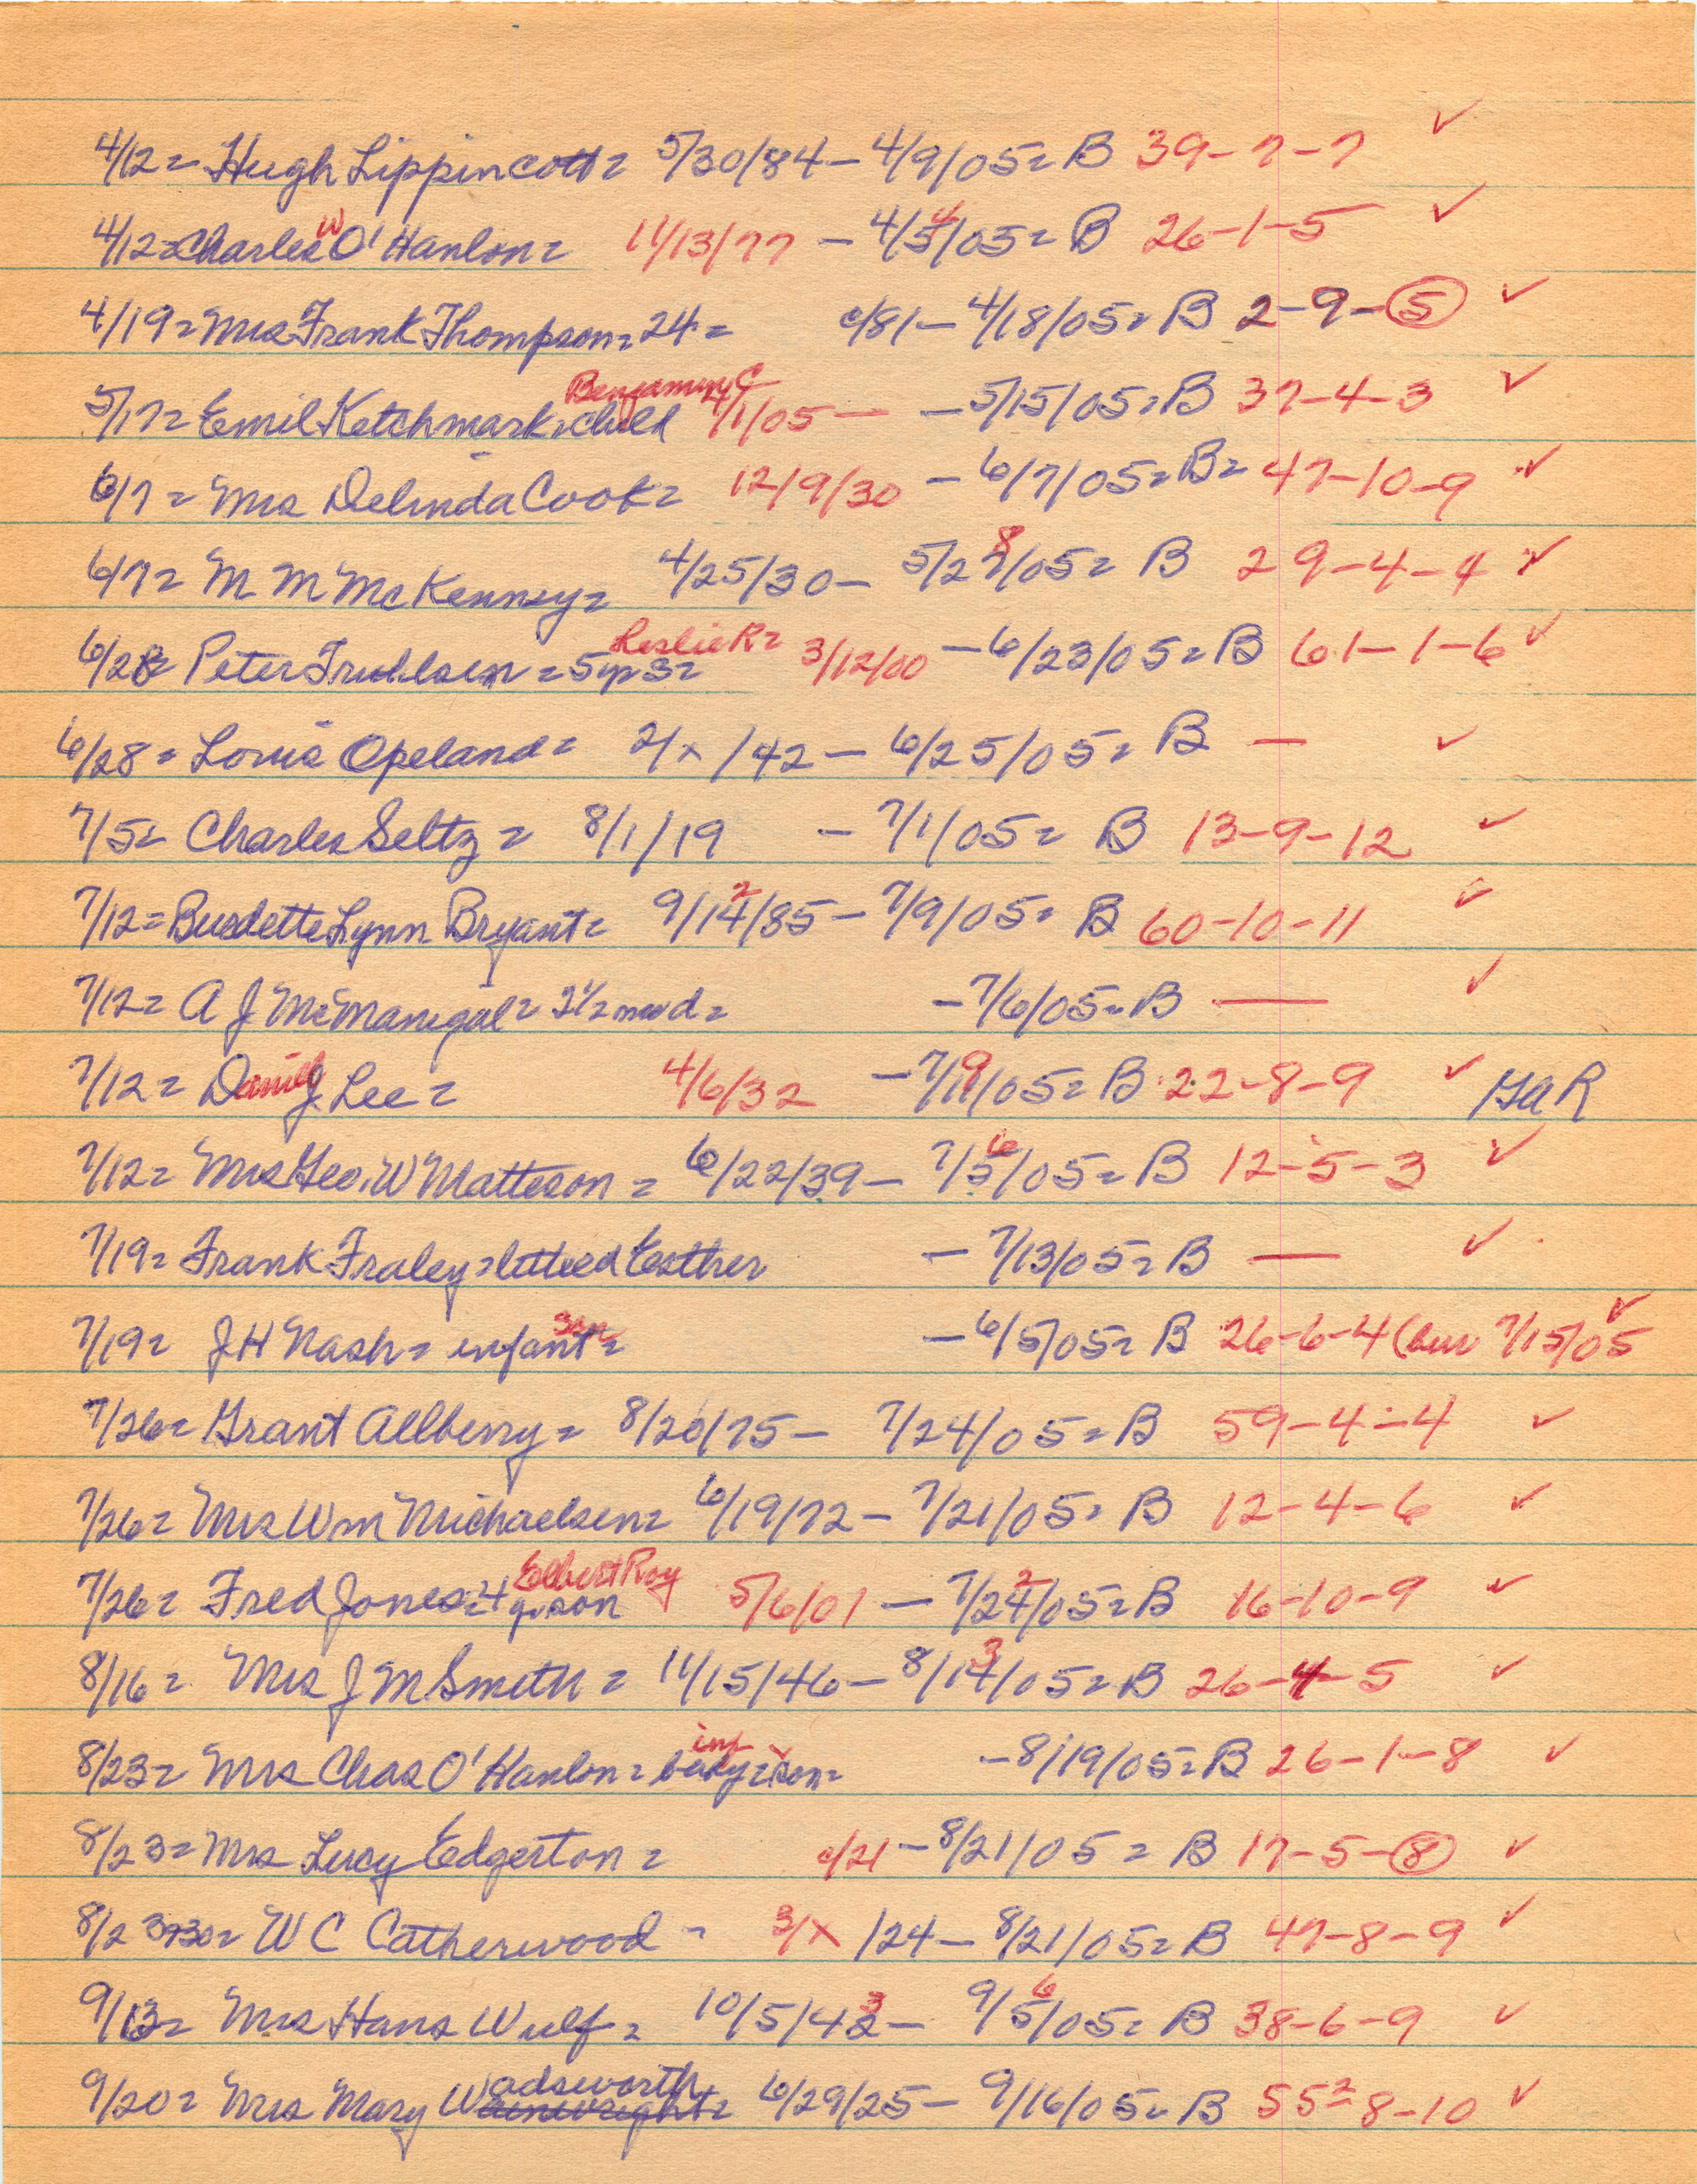 4/12= Hugh Lippincott= 5/30/84 - 4/9/05= B 39-7-7 ✓
4/12= Charles W O'Hanlon= 11/13/77 - 4/5/05= 4 B 26-1-5 ✓
4/19= Mrs Frank Thompson= 24= c/81 - 4/18/05= B 2-9-5 ✓
5/17= Emil Ketchmark= child Benjamin C 4/1/05 - - 5/15/05= B 37-4-3 ✓
6/7= Mrs Delinda Cook= 12/9/30 - 6/7/05= B= 47-10-9 ✓
6/7= M M McKenney= 4/25/30 - 5/27/05= 8 B 29-4-4 ✓
6/28= Peter = 5yrs= Leslie R= 3/12/00 - 6/23/05= B 61-1-6 ✓
6/28= Louis Opeland= 2/x/42 - 6/25/05= B — ✓
7/5= Charles Seltz= 8/1/19 - 7/1/05= B 13-9-12 ✓
7/12= Burdette Lynn Bryant= 9/14/85 2 - 7/9/05= B 60-10-11 ✓
7/12= A J McManigal= 2 1/2 d= - 7/6/05= B — ✓
7/12= Daniel J Lee= 4/6/32 - 7/11/05= 9 B 22-8-9 ✓ GAR
7/12= Mrs Geo. W Matteson= 6/22/39 - 7/5/05= 6 B 12-5-3 ✓
7/19= Frank Fraley= Esther - 7/13/05= B — ✓
7/19= J H Nash= infant= son - 6/5/05= B 26-6-4 (bur 7/15/05 ✓
7/26= Grant Allberry= 8/20/75 - 7/24/05= B 59-4-4 ✓
7/26= Mrs Wm Michaelsen= 6/19/72 - 7/21/05= B 12-4-6 ✓
7/26= Fred Jones= 4 y. son Elbert Roy 5/6/01 - 7/24/05= 2 B 16-10-9 ✓
8/16= Mrs J M Smith= 11/15/46 - 8/14/05= 3 B 26-4-5 ✓
8/23= Mrs Chas O'Hanlon= baby= son= inf - 8/19/05= B 26-1-8 ✓
8/23= Mrs Lucy Edgerton= c/21 - 8/21/05= B 17-5-8 ✓
8/23= W C Catherwood= 3/x/24 - 8/21/05= B 47-8-9 ✓
9/13= Mrs Hans Wulf= 10/5/42 3 - 9/5/05= 6 B 38-6-9 ✓
9/20= Mrs Mary Wadsworth Wainwright= 6/29/25 - 9/16/05= B 55²-8-10 ✓